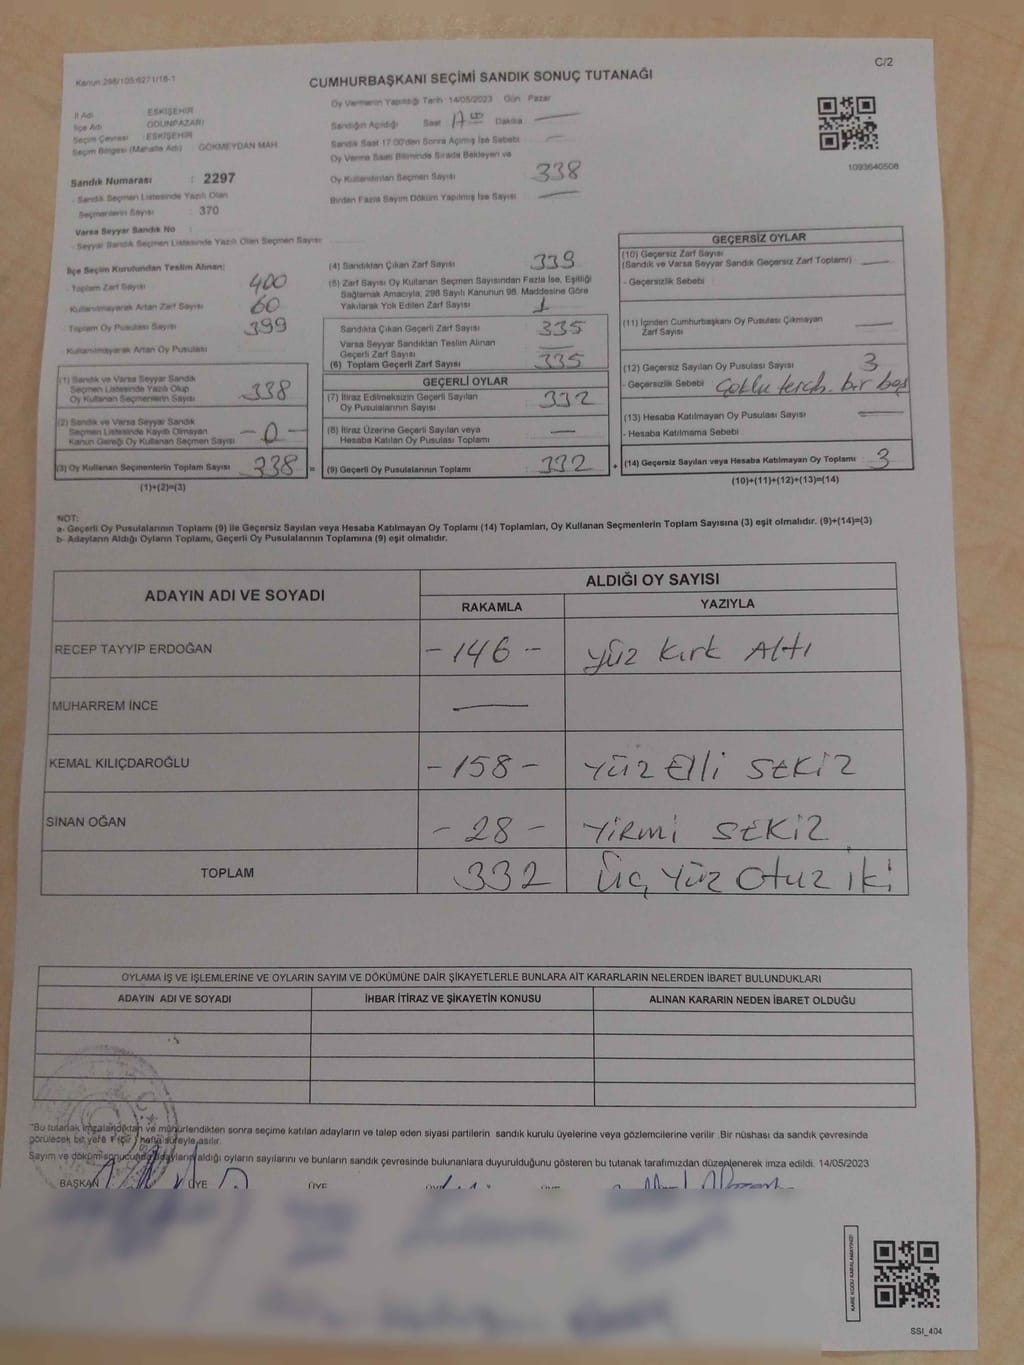 Kanun 298/105:6271/18-1
CUMHURBAŞKANI SEÇİMİ SANDIK SONUÇ TUTANAĞI
C/2
Oy Vermenin Yapıldığı Tarih :14/05/2023 Gün Pazar
İl Adı ESKİŞEHİR
İlçe Adı ODUNPAZARI
Seçim Çevresi : ESKİŞEHİR
Seçim Bölgesi (Mahalle Adı) : GÖKMEYDAN MAH
Sandığın Açıldığı Saat Dakika
Sandık Saat 17:00'den Sonra Açılmış İse Sebebi
Oy Verme Saati Bitiminde Sırada Bekleyen ve
Oy Kullandırılan Seçmen Sayısı 338
Birden Fazla Sayım Döküm Yapılmış İse Sayısı
1093640508
Sandık Numarası : 2297
- Sandık Seçmen Listesinde Yazılı Olan
Seçmenlerin Sayısı : 370
Varsa Seyyar Sandık No
- Seyyar Sandık Seçmen Listesinde Yazılı Olan Seçmen Sayısı :
İlçe Seçim Kurulundan Teslim Alınan;
- Toplam Zarf Sayısı 400
- Kullanılmayarak Artan Zarf Sayısı 60
- Toplam Oy Pusulası Sayısı 399
- Kullanılmayarak Artan Oy Pusulası
(1) Sandık ve Varsa Seyyar Sandık
Seçmen Listesinde Yazılı Olup
Oy Kullanan Seçmenlerin Sayısı 338
(2) Sandık ve Varsa Seyyar Sandık
Seçmen Listesinde Kayıtlı Olmayan
Kanun Gereği Oy Kullanan Seçmen Sayısı - 0 -
(3) Oy Kullanan Seçmenlerin Toplam Sayısı 338 =
(1)+(2)=(3)
(4) Sandıktan Çıkan Zarf Sayısı 339
(5) Zarf Sayısı Oy Kullanan Seçmen Sayısından Fazla İse, Eşitliği
Sağlamak Amacıyla, 298 Sayılı Kanunun 98. Maddesine Göre
Yakılarak Yok Edilen Zarf Sayısı 1
Sandıkta Çıkan Geçerli Zarf Sayısı 335
Varsa Seyyar Sandıktan Teslim Alınan
Geçerli Zarf Sayısı
(6) Toplam Geçerli Zarf Sayısı 335
GEÇERLİ OYLAR
(7) İtiraz Edilmeksizin Geçerli Sayılan
Oy Pusulalarının Sayısı 332
(8) İtiraz Üzerine Geçerli Sayılan veya
Hesaba Katılan Oy Pusulası Toplamı —
(9) Geçerli Oy Pusulalarının Toplamı 332 +
GEÇERSİZ OYLAR
(10) Geçersiz Zarf Sayısı
(Sandık ve Varsa Seyyar Sandık Geçersiz Zarf Toplamı) —
- Geçersizlik Sebebi
(11) İçinden Cumhurbaşkanı Oy Pusulası Çıkmayan
Zarf Sayısı —
(12) Geçersiz Sayılan Oy Pusulası Sayısı 3
- Geçersizlik Sebebi Çoklu terch. bir boş
(13) Hesaba Katılmayan Oy Pusulası Sayısı —
- Hesaba Katılmama Sebebi
(14) Geçersiz Sayılan veya Hesaba Katılmayan Oy Toplamı 3
(10)+(11)+(12)+(13)=(14)
NOT:
a- Geçerli Oy Pusulalarının Toplamı (9) ile Geçersiz Sayılan veya Hesaba Katılmayan Oy Toplamı (14) Toplamları, Oy Kullanan Seçmenlerin Toplam Sayısına (3) eşit olmalıdır. (9)+(14)=(3)
b- Adayların Aldığı Oyların Toplamı, Geçerli Oy Pusulalarının Toplamına (9) eşit olmalıdır.
ADAYIN ADI VE SOYADI
ALDIĞI OY SAYISI
RAKAMLA YAZIYLA
RECEP TAYYİP ERDOĞAN - 146 - Yüz Kırk Altı
MUHARREM İNCE —
KEMAL KILIÇDAROĞLU - 158 - Yüz Elli SEKİZ
SİNAN OĞAN - 28 - YİRMİ SEKİZ
TOPLAM 332 Üç Yüz Otuz İki
OYLAMA İŞ VE İŞLEMLERİNE VE OYLARIN SAYIM VE DÖKÜMÜNE DAİR ŞİKAYETLERLE BUNLARA AİT KARARLARIN NELERDEN İBARET BULUNDUKLARI
ADAYIN ADI VE SOYADI İHBAR İTİRAZ VE ŞİKAYETİN KONUSU ALINAN KARARIN NEDEN İBARET OLDUĞU
"Bu tutanak imzalandıktan ve mühürlendikten sonra seçime katılan adayların ve talep eden siyasi partilerin sandık kurulu üyelerine veya gözlemcilerine verilir .Bir nüshası da sandık çevresinde
görülecek bir yere 1 (bir ) hafta süreyle asılır.
Sayım ve döküm sonucunda adayların aldığı oyların sayılarını ve bunların sandık çevresinde bulunanlara duyurulduğunu gösteren bu tutanak tarafımızdan düzenlenerek imza edildi. 14/05/2023
BAŞKAN ÜYE ÜYE
KARE KODU KARALAMAYINIZ!
SSI_404